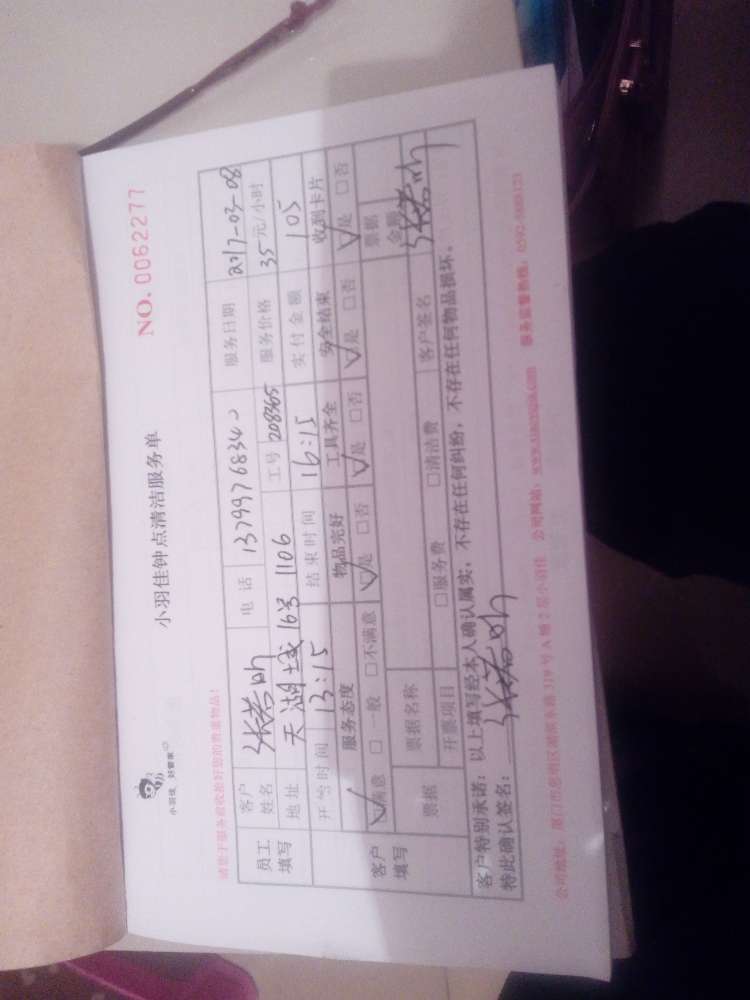 小羽佳 好管家
小羽佳钟点清洁服务单
NO. 0062277
请您于服务前收拾好您的贵重物品!
员工填写 客户姓名 电话 服务日期 2017-03-08
地址 天湖城 16号 1106 工号 208365 服务价格 35元/小时
开始时间 13:15 结束时间 16:15 实付金额 105
客户填写 服务态度 物品完好 工具齐全 安全结束 收到卡片
☑满意 □一般 □不满意 ☑是 □否 ☑是 □否 ☑是 □否 ☑是 □否
票据 票据名称 票据金额
开票项目 □服务费 □清洁费 客户签名
客户特别承诺:以上填写经本人确认属实,不存在任何纠纷,不存在任何物品损坏。
特此确认签名:
公司网站:
服务监督热线: